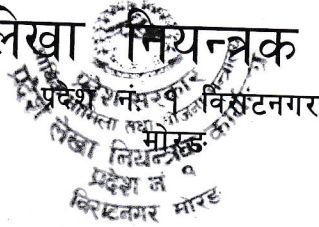 लेखा नियन्त्रक
प्रदेश नं. १ विराटनगर
मोरङ
प्रदेश लेखा नियन्त्रक
प्रदेश नं १
विराटनगर मोरङ